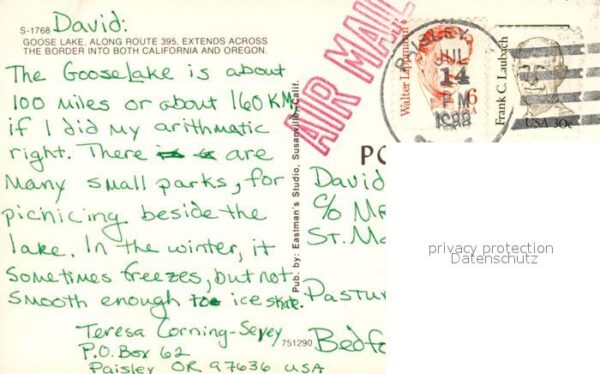 S-1768 David:
GOOSE LAKE, ALONG ROUTE 395, EXTENDS ACROSS
THE BORDER INTO BOTH CALIFORNIA AND OREGON.
The GooseLake is about
100 miles or about 160 KM
if I did my arithmatic
right. There are
many small parks, for
picnicing beside the
lake. In the winter, it
sometimes freezes, but not
smooth enough to ice skate.
Teresa Corning-Sevey
P.O. Box 62
Paisley OR 97636 USA
Pub. by: Eastman's Studio, Susanville, Calif.
751290
AIR MAIL
Walter Lippmann
6
PAISLEY
JUL
14
PM
1988
Frank C. Laubach
USA 30c
PO
David
c/o Ma
St. Ma
Pastur
Bedfo
privacy protection
Datenschutz